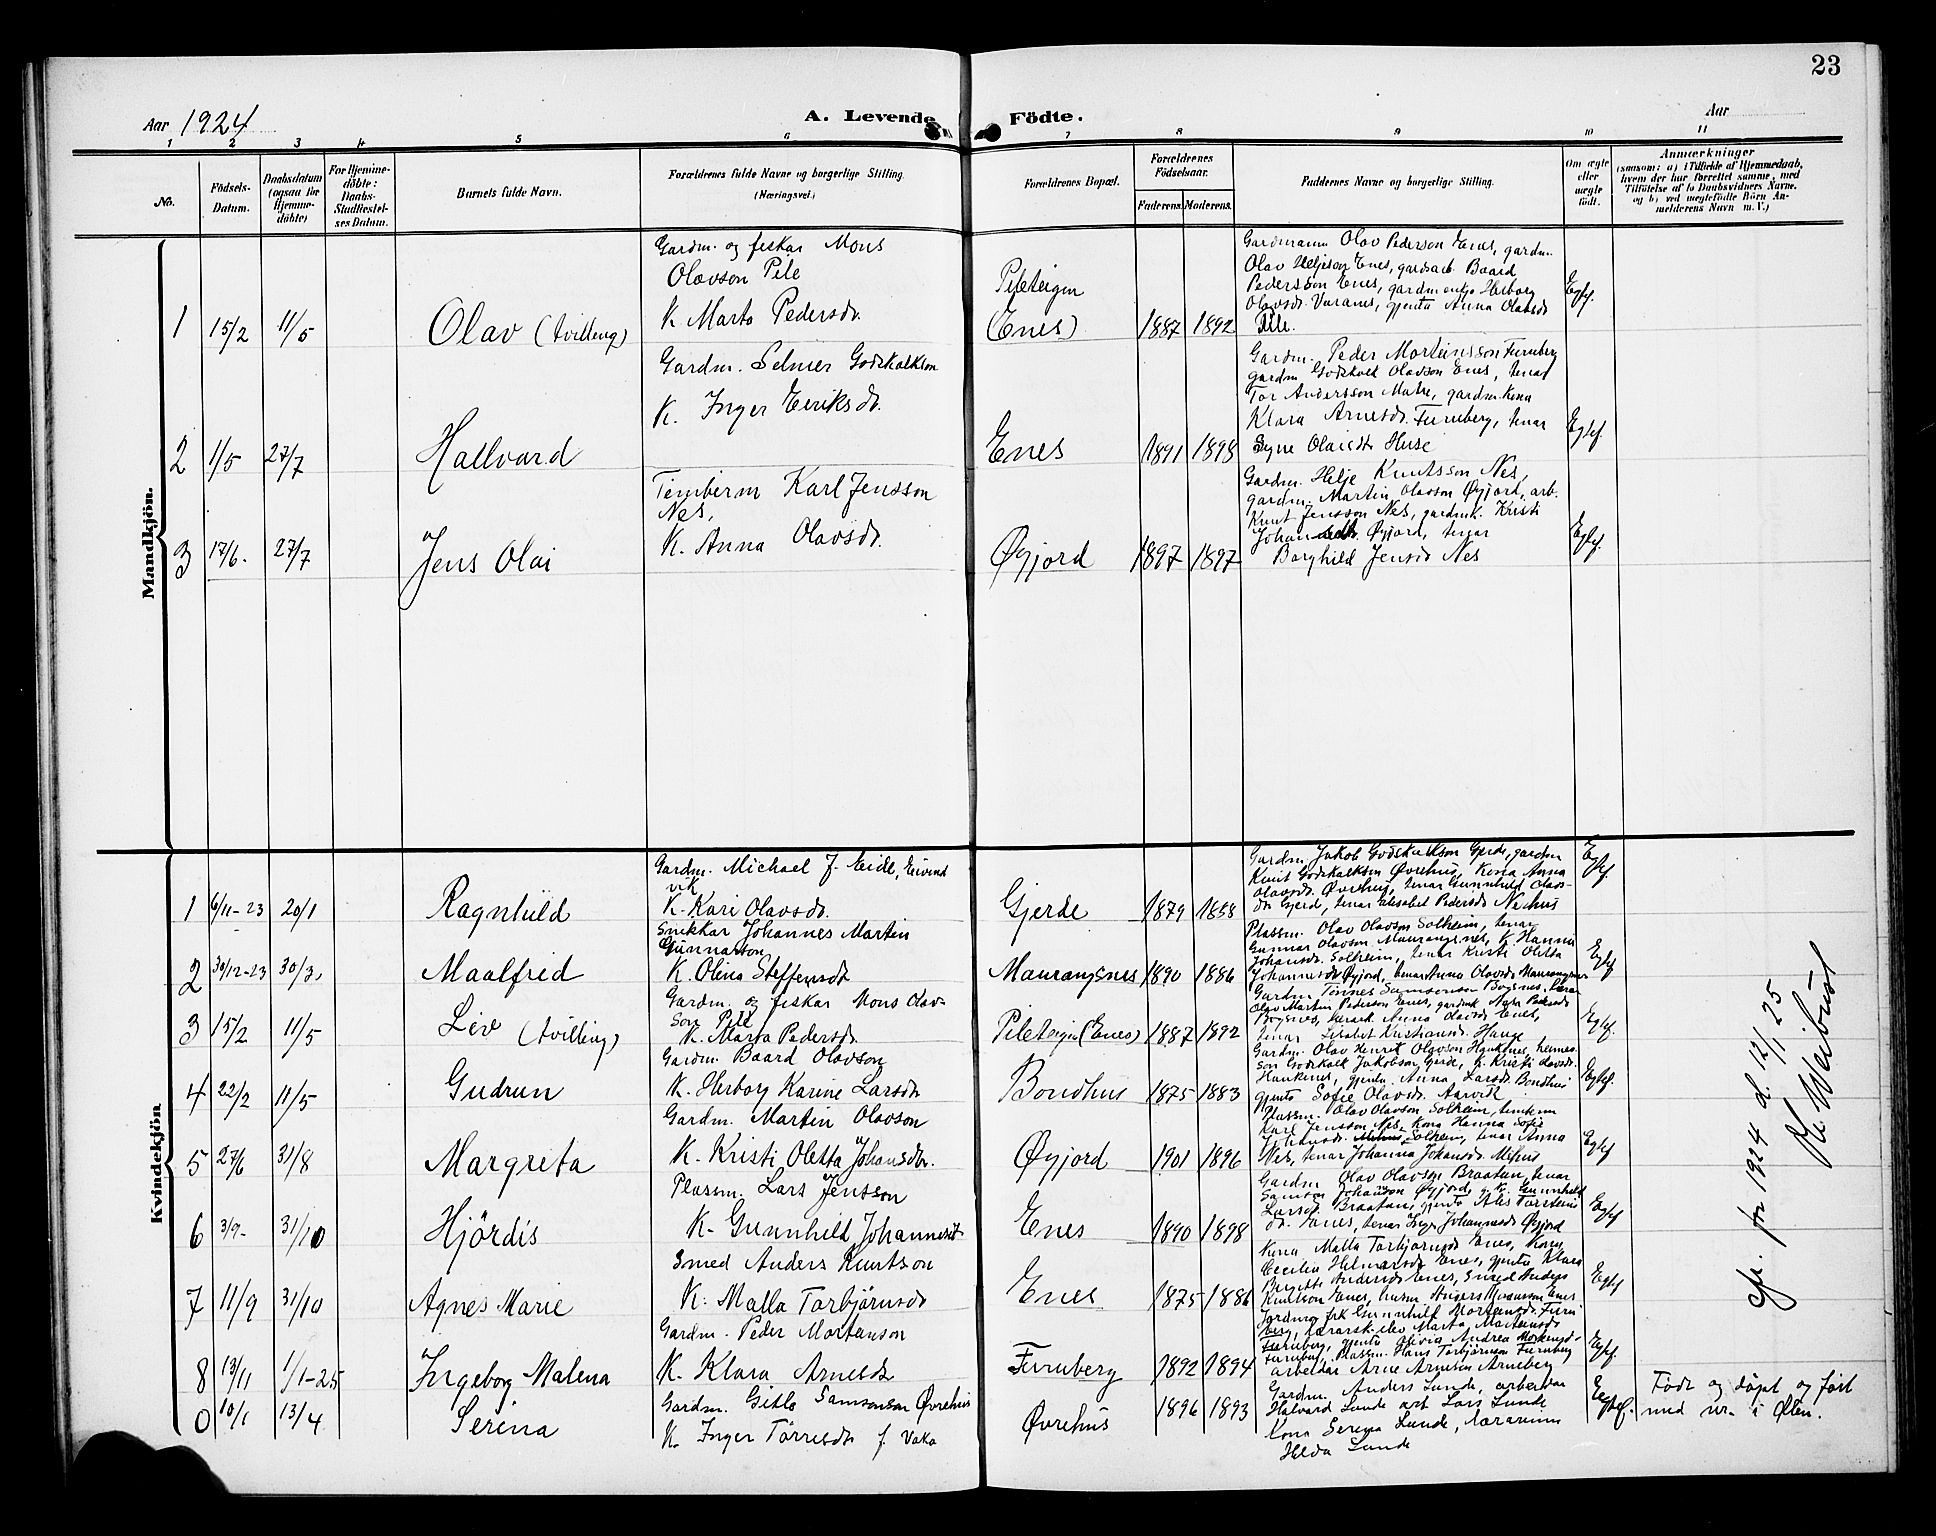 23
Aar 1924
A. Levende Födte.
Aar
1 2 3 4 5 6 7 8 9 10 11
No.
Födsels-
Datum.
Daabsdatum
(ogsaa for
Hjemme-
döbte)
For Hjemme-
döbte:
Daabs-
Stadfæstel-
ses Datum.
Barnets fulde Navn.
Forældrenes fulde Navne og borgerlige Stilling.
(Næringsvei.)
Forældrenes Bopæl.
Forældrenes
Födselsaar.
Faderens. Moderens.
Faddernes Navne og borgerlige Stilling.
Om ægte
eller
uægte
født.
Anmærkninger
(saasom: a) i Tilfælde af Hjemmedaab,
hvem der har forrettet samme, med
Tilföielse af to Daabsvidners Navne.
og b) ved uægtefödte Börn An-
melderens Navn m. V.)
Mandkjön.
1 15/2 11/5 Olav (tvilling)
Gardm. og fiskar Mons
Olavson Pile
K Marta Pedersdr.
Pileteigen
(Enes) 1887 1892
Gardmann Olav Pederson Enes, gardm.
Olav Heljeson Enes, gardarb. Baard
Pedersson Enes, gardm enkja Herborg
Olavsdr.
gjenta Anna Olavsdr
Pile.
Egtef.
2 1/5 27/7 Hallvard
Gardm. Selmer Godskalkson
K. Inger Eiriksdr.
Enes 1891 1898
Gardm. Peder Morteinsson Furuberg
gardm Godskalk Olavson Enes, tenar
Tor Andersson Matre, gardm. kona
Klara Arnesdr. Furuberg, tenar
Syne Olaisdtr Huse
Egtef.
3 17/6. 27/7 Jens Olai
Timberm Karl Jensson
Nes,
K. Anna Olavsdr.
Øyjord 1897 1897
Gardm. Helje Knutsson Nes,
gardm. Martin Olavson Øyjord, arb.
Knut Jensson Nes, gardmk. Kristi
Johansdtr. Øyjord, tenar
Borghild Jensdr Nes
Egtef.
Kvindekjön
1 6/11-23 20/1 Ragnhild
Gardm. Michael J. Eide, Eivind
vik
K. Kari Olavsdr.
Gjerde 1879
Gardm. Jakob Godskalkson Gjerde, gardm
Knut Godskalkson Øvrehus, Kona Anna
Olavsdr. Øvrehus, tenar Gunnhild Olavs-
dr Gjerd, tenar
Pedersdr
Egtef
2 30/12-23 30/3. Maalfrid
Snikkar Johannes Martin
Gunnarson
K. Olina Steffensdr
Maurangsnes 1890 1886
Plassm. Olav Olavson Solheim, tenar
Gunnar Olavson Maurangsnes, K. Hanna
Johansdr. Solheim, tenar Kristi Oletta
Johannesdr Øyjord, tenar Anna Olavsdr Maurangsnes
Egtef
3 15/2 11/5 Liv (tvilling)
Gardm. og fiskar Mons Olav-
son Pile
K. Marta Pedersdr
Pileteigen (Enes) 1887 1892
Gardm Tönnes Samsonson Bogsnes,
Olav Martin Pederson Enes, gardmk
Bogsnes,
Anna Olavsdr Enes,
tenar
Kristiansdr. Hauge
Egtef.
4 22/2 11/5 Gudrun
Gardm. Baard Olavson
K. Herborg Karine Larsdr
Bondhus 1875 1883
Gardm. Olav Henrik Olavson
son Godskalk Jakobson Gjerde, K. Kristi Olavsdr.
gjenta Anna Larsdr. Bondhus
gjenta Sofie Olavsdr. Aarvik
Egtef.
5 27/6 31/8 Margreta
Gardm. Martin Olavson
K. Kristi Oletta Johansdtr.
Øyjord 1901 1896
Plassm. Olav Olavson Solheim, timberm
Karl Jensson Nes, Kona Hanna Sofie
Johansdr.
Solheim, tenar Anna
Nes, tenar Johanna Johansdr
Egtef
6 3/9- 31/10 Hjördis
Plassm. Lars Jensson
K. Gunnhild Johannesdr
Enes 1890 1898
Gardm Olav Olavson Braatun, tenar
Samson Johanson Øyjord, g. K. Gunnhild
Larsd. Braatun, gjenta
dr. Enes, tenar Inga Johannesdr Øyjord
Egtef
7 11/9 31/10 Agnes Marie
Smed Anders Knutson
K. Malla Torbjörnsdr
Enes 1875 1886
Kona Malla Torbjörnsdr Enes, Kona
Cecilia Helmersdr Enes, gjenta Klara
Birgitte Andersdr Enes, Smed Anders
Knutson Enes,
Egtef
8 13/11 1/1-25 Ingeborg Malena
Gardm. Peder Mortenson
K. Klara Arnesdr
Furuberg 1892 1894
Jordmor frk Gunnhild Mortensdr Furu
berg, lærarsk. elev Marta Morteinsdr
Furuberg, gjenta Olivia Andrea
Furuberg, Plassm. Hans Torbjörnson Furuberg
arbeidar Arne Arneson Arneberg
Egtef.
0 10/1 13/4 Serina
Gardm. Gitle Samsonson Øvrehus
K. Inger Törresdr f. Vaka
Øvrehus 1896 1893
Gardm. Anders Lunde, arbeidar
Halvard Lunde arb Lars Lunde
Kona Serina Lunde, lærarinne
Helda Lunde
Egtef.
Födt og döypt og fört
med nr. i Ölen.
for 1924 d. 12/1 25